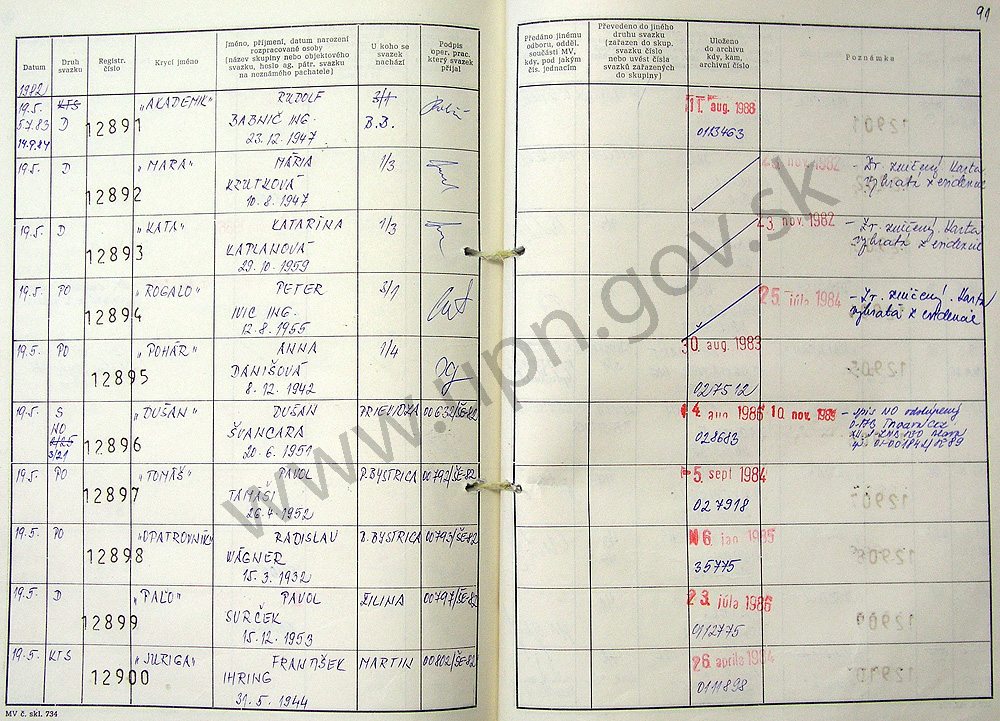 91
Datum
Druh svazku
Registr. číslo
Krycí jméno
Jméno, příjmení, datum narození
rozpracované osoby
(název skupiny nebo objektového
svazku, heslo ag. pátr. svazku
na neznámého pachatele)
U koho se
svazek
nachází
Podpis
oper. prac.
který svazek
přijal
Předáno jinému
odboru, odděl.
součásti MV,
kdy, pod jakým
čís. jednacím
Převedeno do jiného
druhu svazku
(zařazen do skup.
svazku číslo
nebo uvést čísla
svazků zařazených
do skupiny)
Uloženo
do archivu
kdy, kam,
archivní číslo
Poznámka
1982
19.5. KTS 12891 „AKADEMIK" RUDOLF 3/1 11. aug. 1988
5.7.83 D BABNIČ ING. B.B. 0113463
14.9.84 23.12.1947
19.5. D 12892 „MARA" MÁRIA 1/3 nov. 1982 - Zv. zničený Karta
KRUTKOVÁ vybratá z evidencie
10.8.1947
19.5. D 12893 „KATA" KATARÍNA 1/3 23. nov. 1982 - Zv. zničený. Karta
KAPLANOVÁ vybratá z evidencie
29.10.1959
19.5. PO 12894 „ROGALO" PETER 3/1 25. júla 1984 - Zv. zničený. Karta
IVIC ING. vybratá z evidencie
12.8.1955
19.5. PO 12895 „POHÁR" ANNA 1/4 30. aug. 1983
DANIŠOVÁ 027512
8.12.1942
19.5. S 12896 „DUŠAN" DUŠAN PRIEVIDZA 00632/ŠE-82 4. aug 1986 10. nov. 1989 - spis NO odstúpený
NO ŠVANCARA 028683
3/21 20.6.1951
19.5. PO 12897 „TOMÁŠ" PAVOL P.BYSTRICA 00792/ŠE-82 5. sept 1984
TAMAŠI 027918
26.4.1952
19.5. PO 12898 „OPATROVNÍK" RADISLAV B.BYSTRICA 00793/ŠE-82 16. jan 1985
WÁGNER 35775
15.3.1932
19.5. D 12899 „PAĽO" PAVOL ŽILINA 00797/ŠE-82 23. júla 1986
SURČEK 0112775
15.12.1953
19.5. KTS 12900 „JURIGA" FRANTIŠEK MARTIN 00802/ŠE-82 26. apríla 1984
IHRING 0111898
31.5.1944
MV č. skl. 734
www.upn.gov.sk